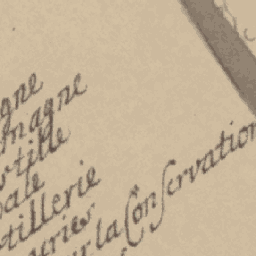 gne
magne
tille
ale
tillerie
uries
r la Conservation